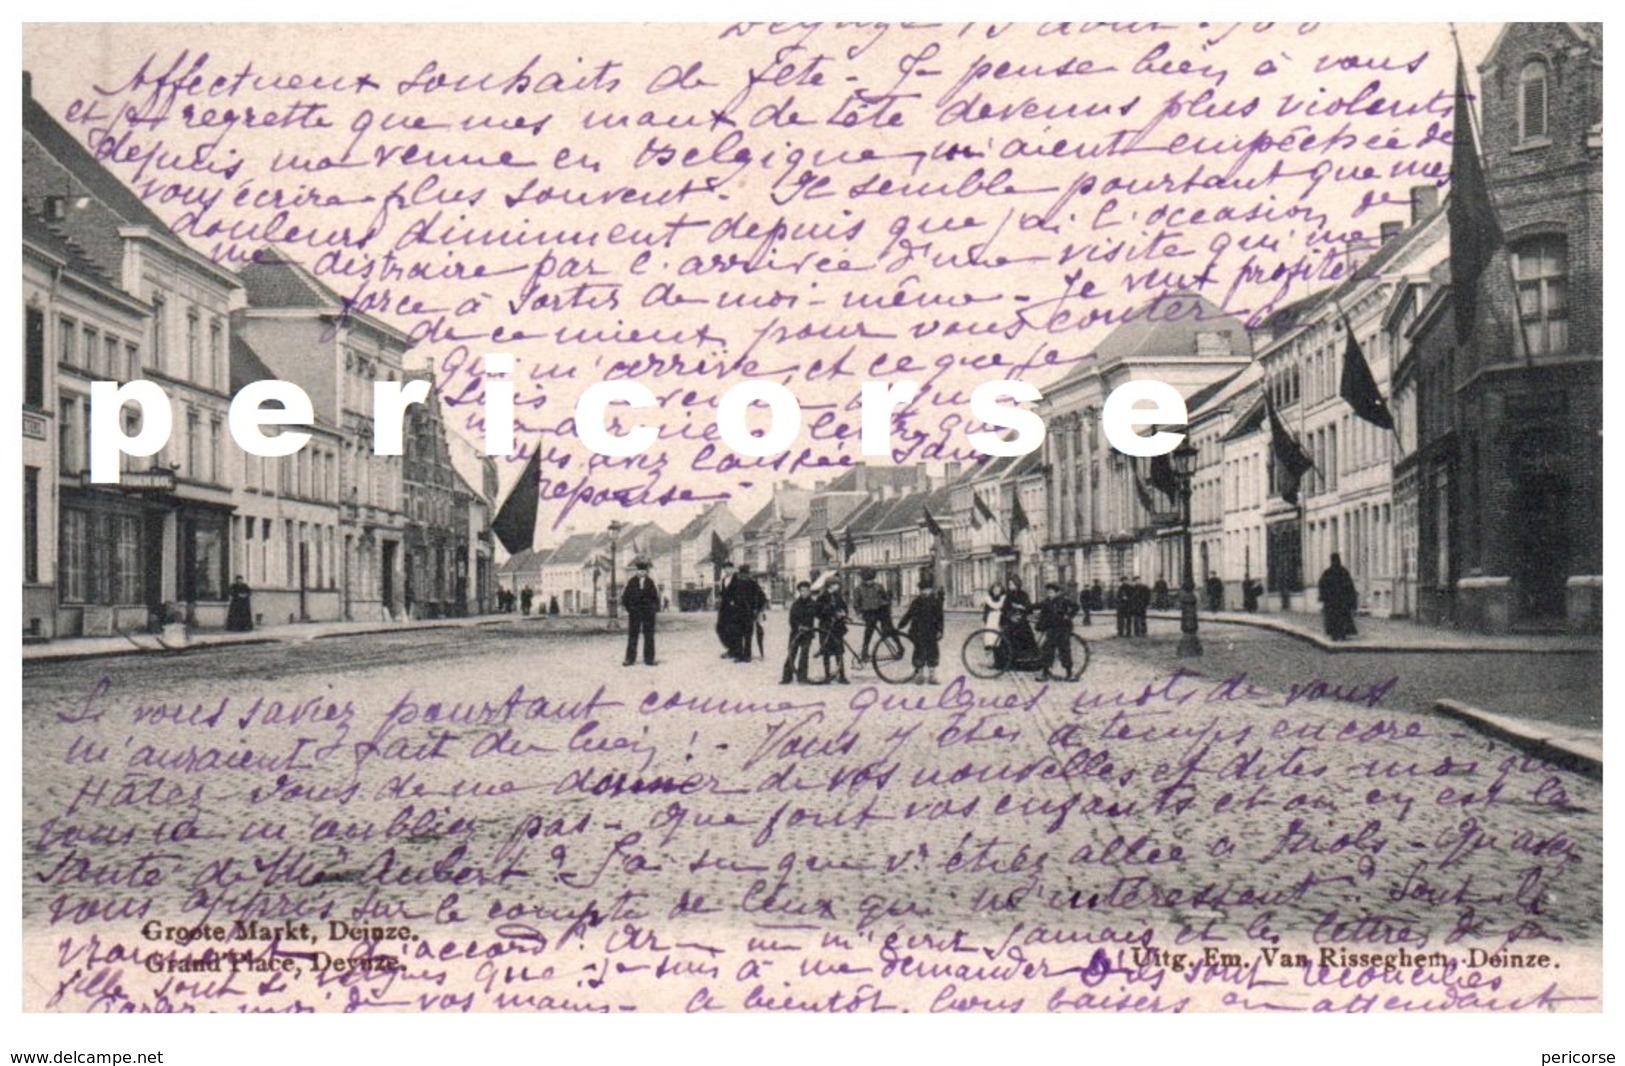 Deynze 15 Août
Affectueux souhaits de fête - Je pense bien à vous
et je regrette que mes maux de tête devenus plus violents
depuis ma venue en Belgique, m'aient empêchée de
vous écrire plus souvent. Il semble pourtant que mes
douleurs diminuent depuis que j'ai l'occasion de
me distraire par l'arrivée d'une visite qui me
force à sortir de moi-même - Je veux profiter
de ce mieux pour vous conter
qui m'arrive, et ce que je
suis
ma dernière lettre que
vous avez laissée sans
réponse -
pericorse
Si vous saviez pourtant comme quelques mots de vous
m'auraient fait du bien ! - Vous y êtes à temps encore -
Hâtez-vous de me donner de vos nouvelles et dites-moi que
vous ne m'oubliez pas - Que font vos enfants et où en est la
santé de Aubert ? J'ai su que v. étiez allée à - Qu'avez
vous appris sur le compte de ceux qui m'intéressent ? Sont-ils
vraiment d'accord ? On ne m'écrit jamais et les lettres de sa
fille sont si vagues que je suis à me demander s'ils sont réconciliés
Parlez-moi de vos mains - A bientôt, bons baisers en attendant
Groote Markt, Deinze.
Grand'Place, Deynze.
Uitg. Em. Van Risseghem, Deinze.
www.delcampe.net
pericorse